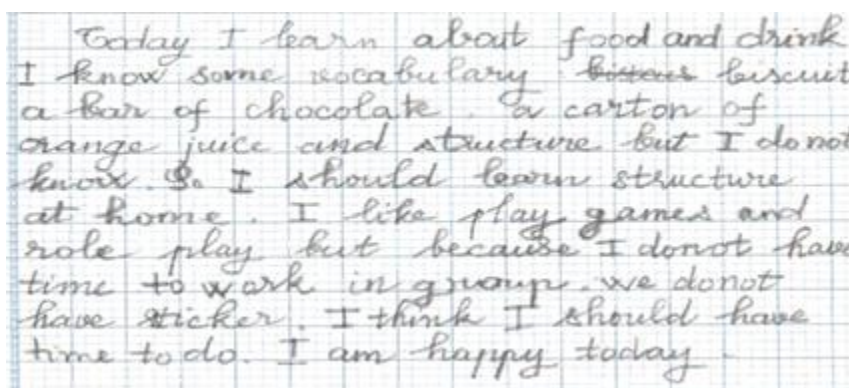 Today I learn about food and drink
I know some vocabulary biscuit
a bar of chocolate. a carton of
orange juice and structure but I donot
know. So I should learn structure
at home. I like play games and
role play but because I donot have
time to work in group. we donot
have sticker. I think I should have
time to do. I am happy today.